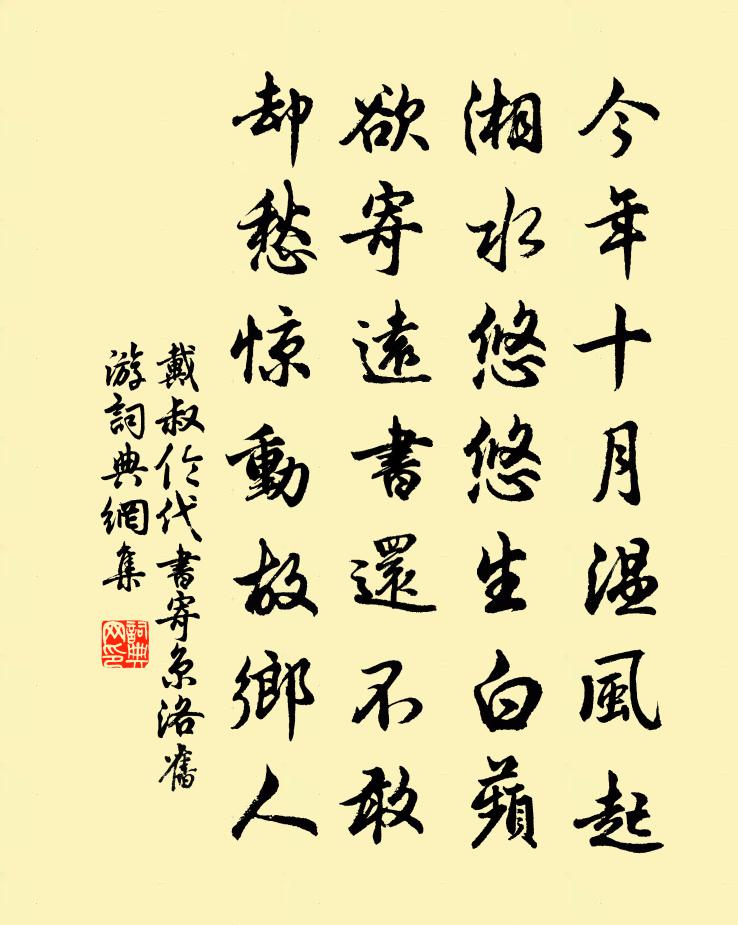 今年十月温風起
湘水悠悠生白蘋
欲寄遠書還不敢
却愁惊動故鄉人
戴叔伦代書寄京洛舊
游詞典網集
詞典
网印